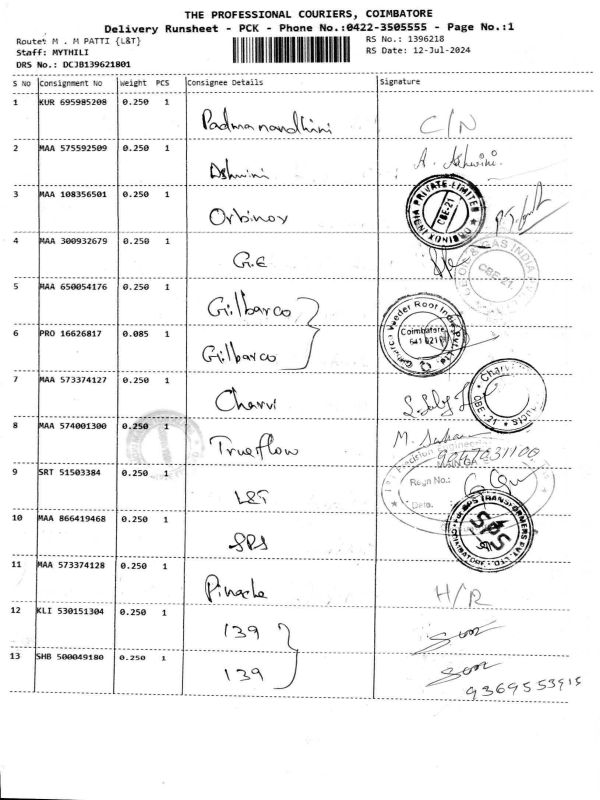 THE PROFESSIONAL COURIERS, COIMBATORE
Delivery Runsheet - PCK - Phone No.:0422-3505555 - Page No.:1
Route: M . M PATTI {L&T}
RS No.: 1396218
Staff: MYTHILI
RS Date: 12-Jul-2024
DRS No.: DCJB139621801
S No Consignment No Weight PCS Consignee Details Signature
1 KUR 695985208 0.250 1 Padmanandhini C/N
2 MAA 575592509 0.250 1 Ashwini A. Ashwini.
3 MAA 108356501 0.250 1 Orbinox
ORBINOX INDIA PRIVATE LIMITED CBE-21
4 MAA 300932679 0.250 1 G.E
& GAS INDIA CBE-21
5 MAA 650054176 0.250 1 Gilbarco
Gilbarco Veeder Root India Pvt. Ltd. Coimbatore 641 021
6 PRO 16626817 0.085 1 Gilbarco
7 MAA 573374127 0.250 1 Charvi
Charvi CBE-21
8 MAA 574001300 0.250 1 Trueflow M.
9047031100
9 SRT 51503384 0.250 1 L&T
Precision Engineering
Regn No.:
Date.
10 MAA 866419468 0.250 1 SPS
SPS TRANSFORMERS PVT LTD
11 MAA 573374128 0.250 1 Pinacle H/R
12 KLI 530151304 0.250 1 139
13 SHB 500049180 0.250 1 139
9369553915